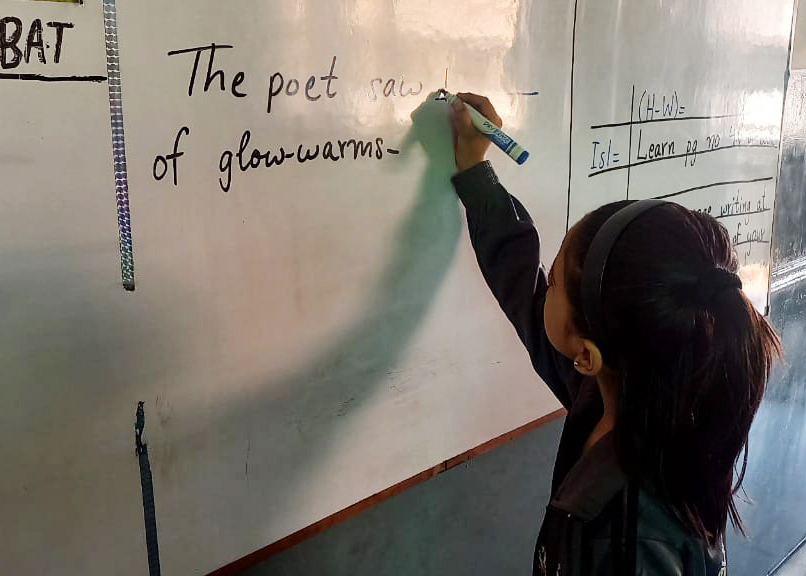 BAT
The poet saw
of glow-warms-
(H-W)=
Isl= Learn pg no
writing at
of your